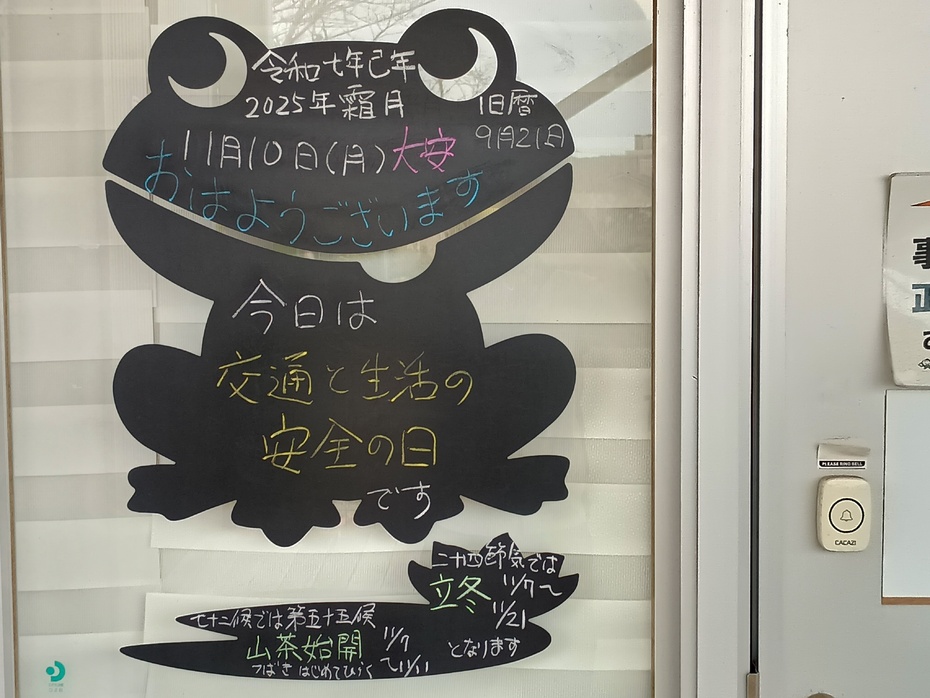 令和七年己年
2025年霜月
旧暦
9月21日
11月10日(月)大安
おはようございます
今日は
交通と生活の
安全の日
です
二十四節気では
立冬 11/7〜
11/21
となります
七十二候では第五十五候
山茶始開 11/7
〜11/11
つばき はじめてひらく
PLEASE RING BELL
CACAZI
事
正